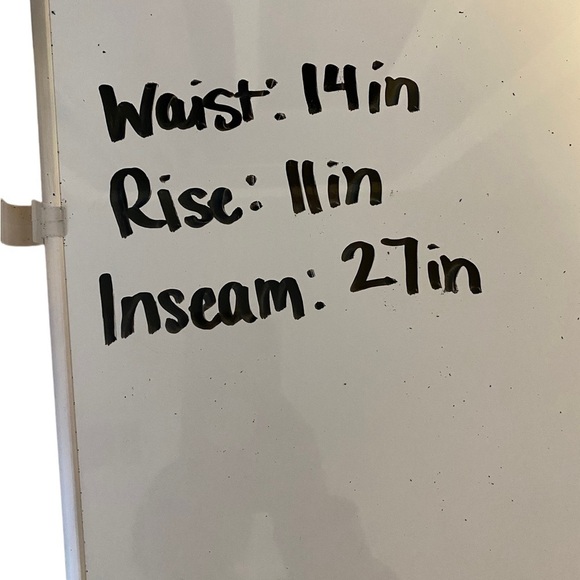 Waist: 14in
Rise: 11in
Inseam: 27in